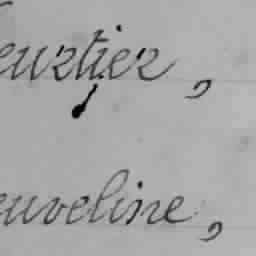 eurtier,
euveline,